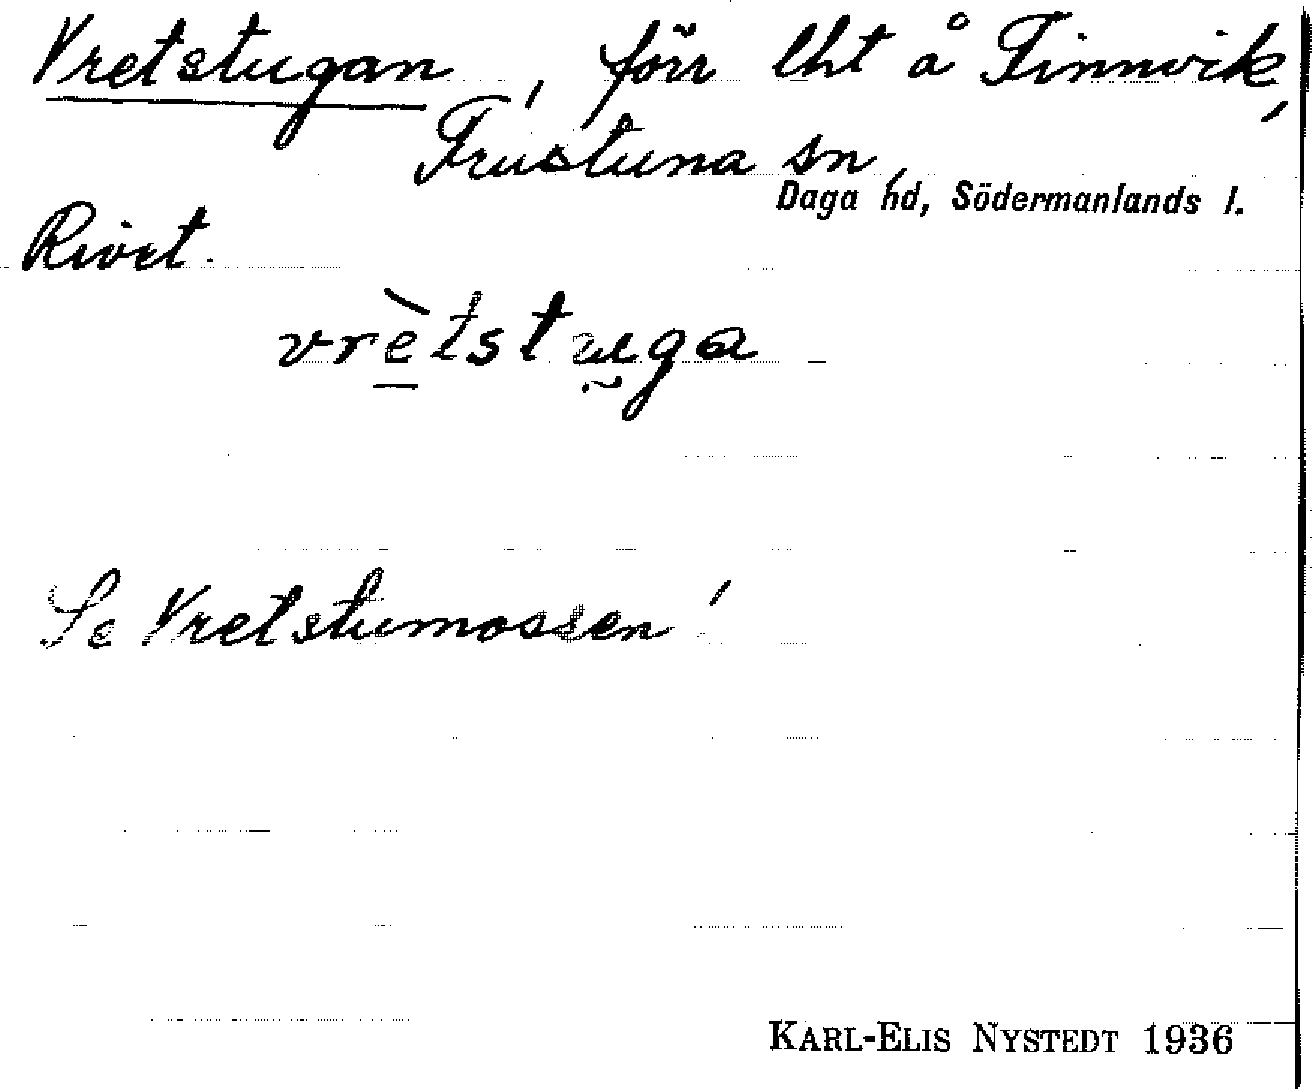 Vretstugan, förr lht å Finnvik,
Frustuna sn,
Daga hd, Södermanlands l.
Rivet.
vrètstuga
Se Vretstumossen!
KARL-ELIS NYSTEDT 1936